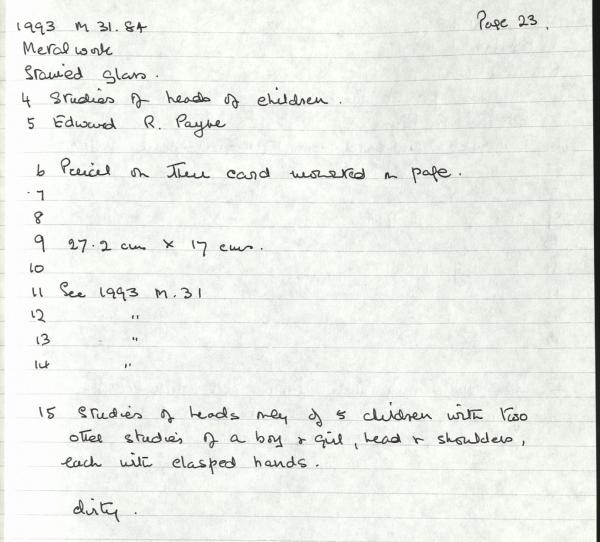 1993 M 31.84 Page 23.
Metalwork
Stained glass.
4 Studies of heads of children.
5 Edward R. Payne
6 Pencil on thin card mounted on page.
7
8
9 27.2 cm × 17 cms.
10
11 See 1993 M.31
12 "
13 "
14 "
15 Studies of heads only of 5 children with two
other studies of a boy & girl, head & shoulders,
each with clasped hands.
dirty.